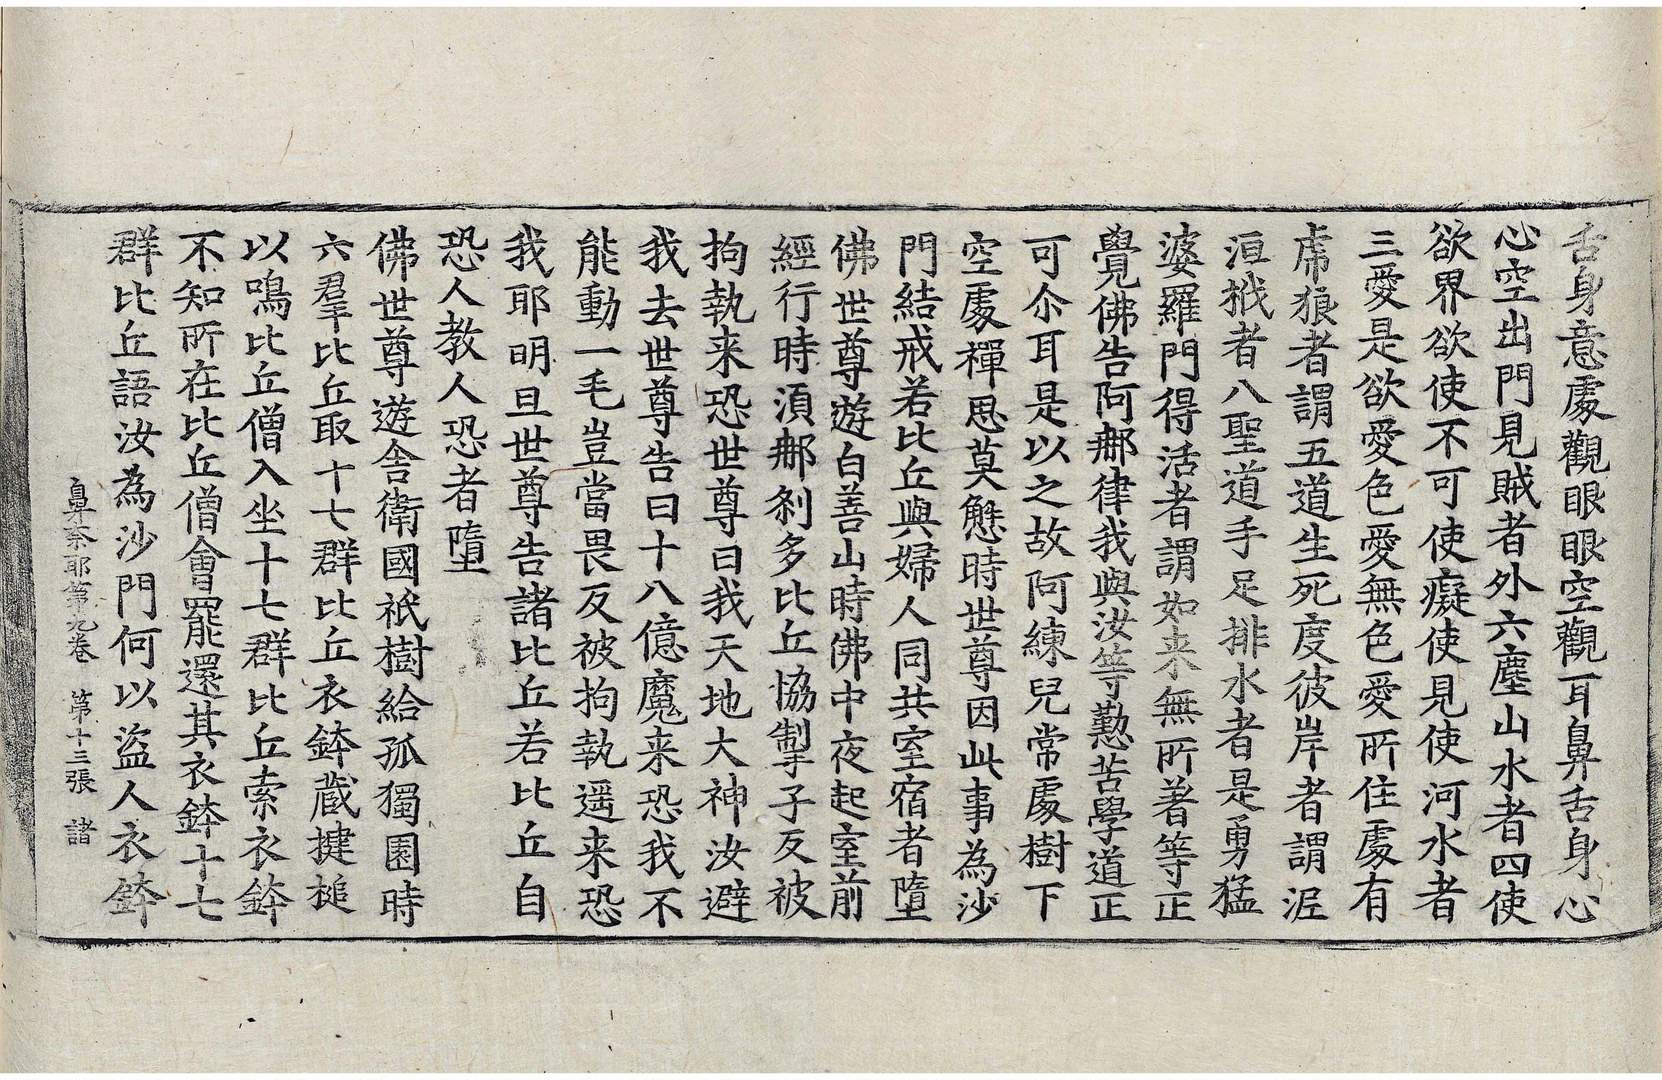 舌身意處觀眼眼空觀耳鼻舌身心
心空出門見賊者外六塵山水者四使
欲界欲使不可使癡使見使河水者
三愛是欲愛色愛無色愛所住處有
虎狼者謂五道生死度彼岸者謂泥
洹栰者八聖道手足排水者是勇猛
婆羅門得活者謂如来無所著等正
覺佛告阿那律我與汝等懃苦學道正
可尒耳是以之故阿練兒常處樹下
空處禪思莫懈時世尊因此事為沙
門結戒若比丘與婦人同共室宿者墮
佛世尊遊白善山時佛中夜起室前
經行時湏那剎多比丘協掣子反被
拘執来恐世尊曰我天地大神汝避
我去世尊告曰十八億魔来恐我不
能動一毛豈當畏反被拘執遥来恐
我耶明旦世尊告諸比丘若比丘自
恐人教人恐者墮
佛世尊遊舍衛國祇樹給孤獨園時
六羣比丘取十七群比丘衣鉢蔵揵槌
以鳴比丘僧入坐十七群比丘索衣鉢
不知所在比丘僧會罷還其衣鉢十七
群比丘語汝為沙門何以盜人衣鉢
鼻奈耶第九卷 第十三張 諸